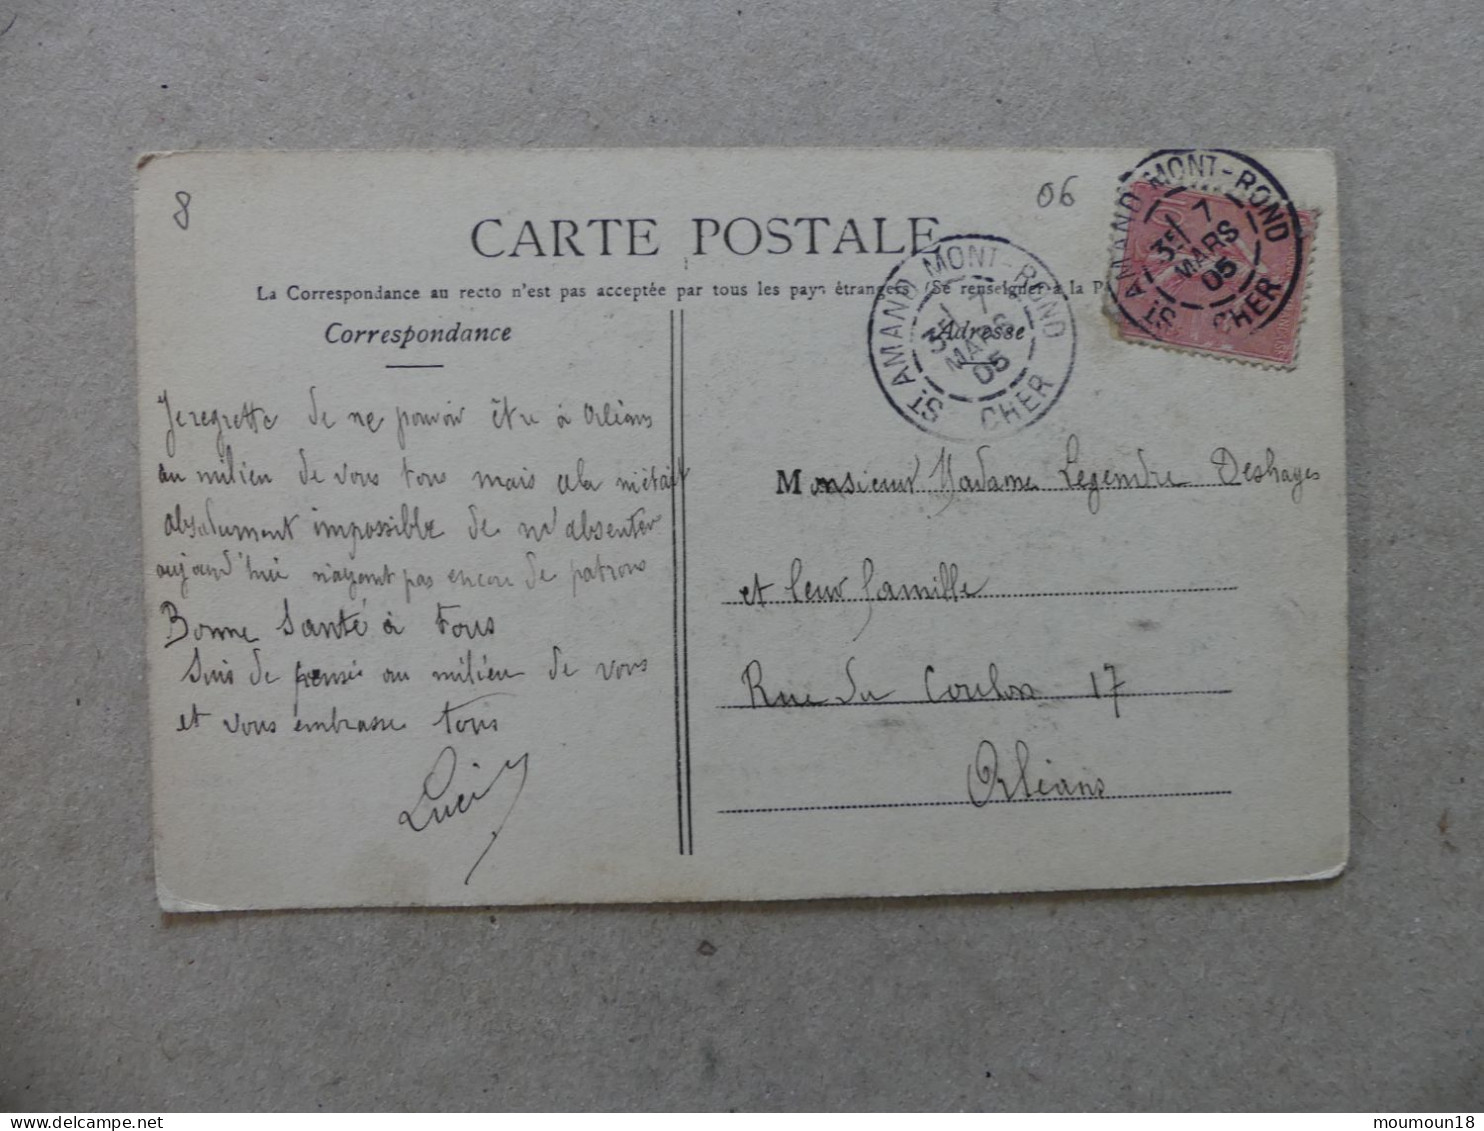 8
06
CARTE POSTALE
La Correspondance au recto n'est pas acceptée par tous les pays étrangers (Se renseigner à la P
Correspondance
Adresse
ST AMAND MONT-ROND
3E
7
MARS
05
CHER
ST AMAND MONT-ROND
3E
7
MARS
05
CHER
Je regrette de ne pouvoir être à Orléans
au milieu de vous tous mais cela m'était
absolument impossible de m'absenter
aujourd'hui n'ayant pas encore de patrons
Bonne Santé à tous
Suis de pensée au milieu de vous
et vous embrasse tous
Lucien
Monsieur Madame Legendre Deshayes
et leur famille
Rue du Coulon 17
Orléans
moumoun18